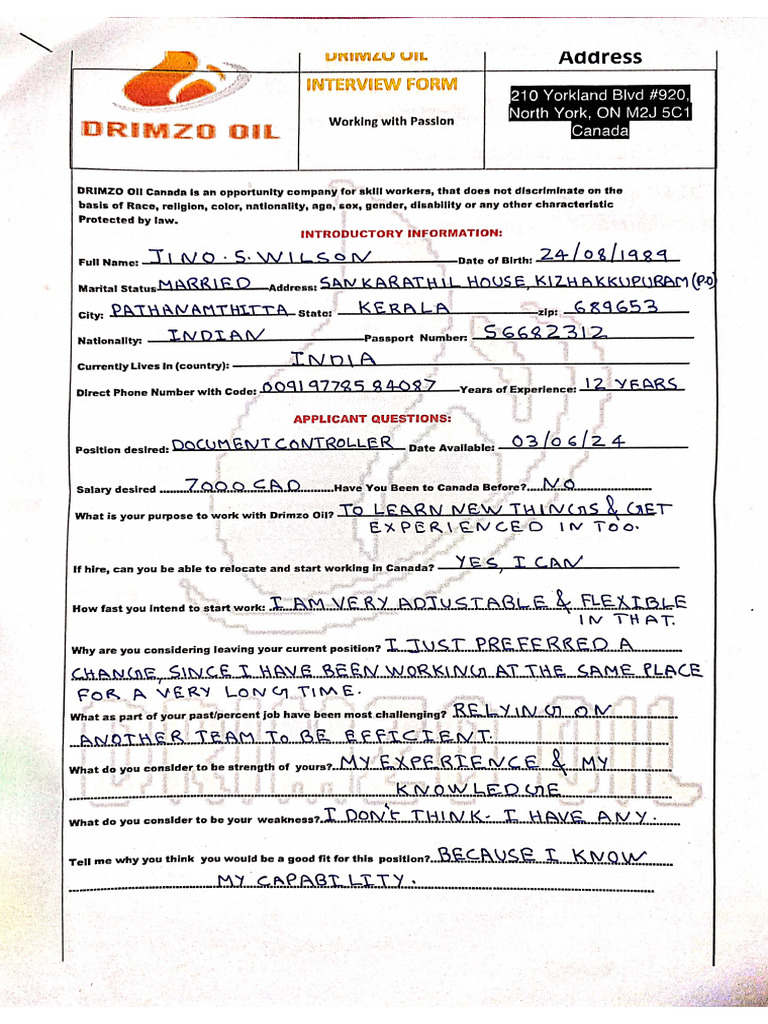 DRIMZO OIL
INTERVIEW FORM
Working with Passion
Address
210 Yorkland Blvd #920,
North York, ON M2J 5C1
Canada
DRIMZO OIL
DRIMZO Oil Canada is an opportunity company for skill workers, that does not discriminate on the
basis of Race, religion, color, nationality, age, sex, gender, disability or any other characteristic
Protected by law.
INTRODUCTORY INFORMATION:
Full Name: JINO.S.WILSON Date of Birth: 24/08/1989
Marital Status MARRIED Address: SANKARATHIL HOUSE, KIZHAKKUPURAM (P.O)
City: PATHANAMTHITTA State: KERALA zip: 689653
Nationality: INDIAN Passport Number: S6682312
Currently Lives In (country): INDIA
Direct Phone Number with Code: 00919778584087 Years of Experience: 12 YEARS
APPLICANT QUESTIONS:
Position desired: DOCUMENT CONTROLLER Date Available: 03/06/24
Salary desired 7000 CAD Have You Been to Canada Before? NO
What is your purpose to work with Drimzo Oil? TO LEARN NEW THINGS & GET
EXPERIENCED IN TOO.
If hire, can you be able to relocate and start working in Canada? YES, I CAN
How fast you intend to start work: I AM VERY ADJUSTABLE & FLEXIBLE
IN THAT.
Why are you considering leaving your current position? I JUST PREFERRED A
CHANGE, SINCE I HAVE BEEN WORKING AT THE SAME PLACE
FOR A VERY LONG TIME.
What as part of your past/percent job have been most challenging? RELYING ON
ANOTHER TEAM TO BE EFFICIENT.
What do you consider to be strength of yours? MY EXPERIENCE & MY
KNOWLEDGE
What do you consider to be your weakness? I DON'T THINK. I HAVE ANY.
Tell me why you think you would be a good fit for this position? BECAUSE I KNOW
MY CAPABILITY.
DRIMZO OIL